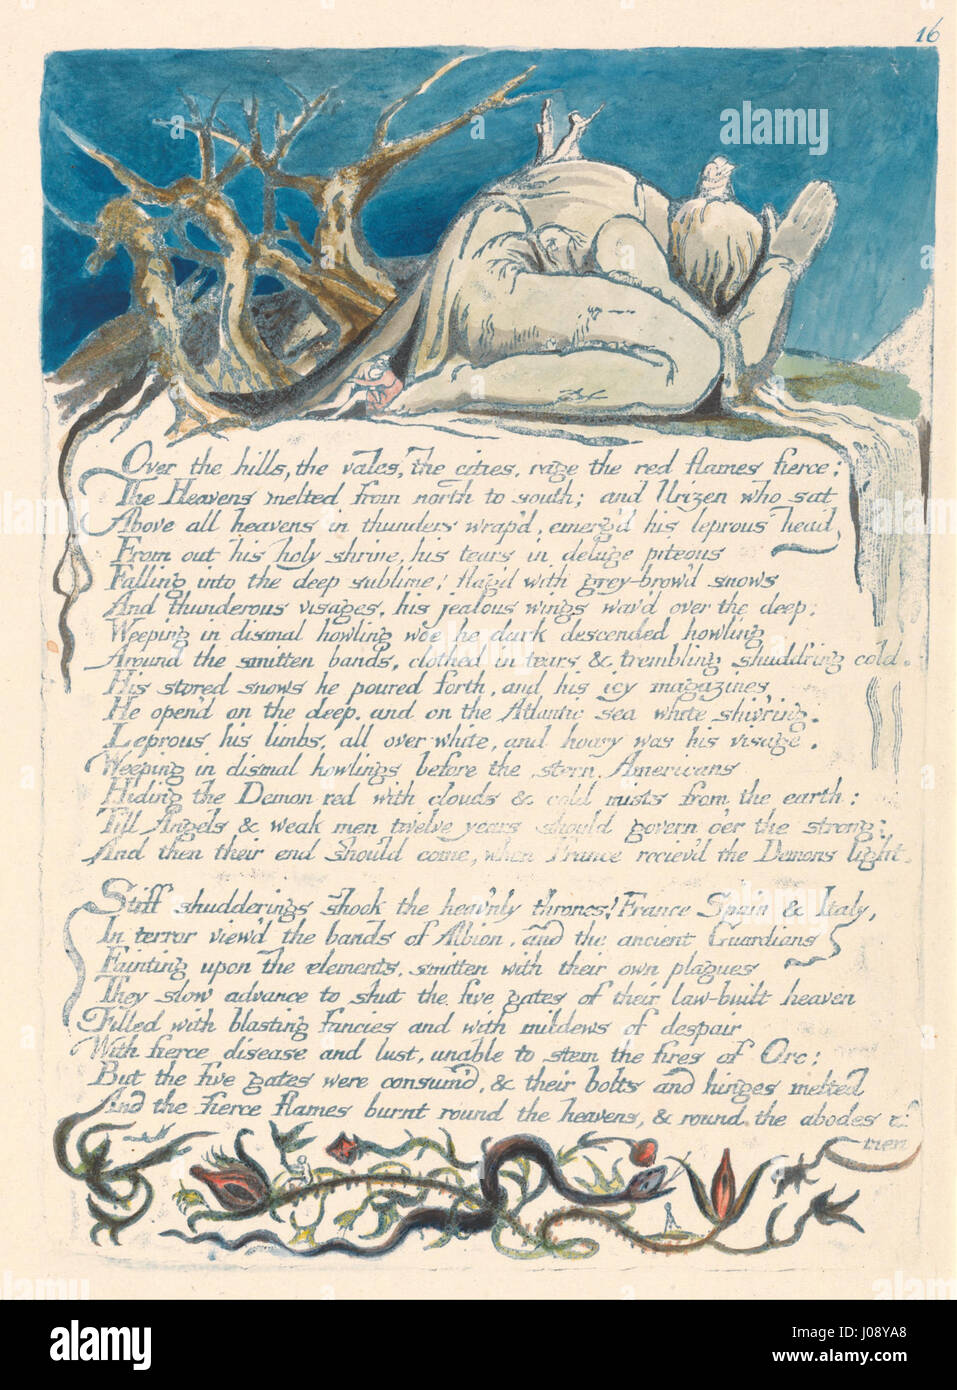 16
Over the hills, the vales, the cities, rage the red flames fierce;
The Heavens melted from north to south; and Urizen who sat
Above all heavens in thunders wrap'd, emerg'd his leprous head
From out his holy shrine, his tears in deluge piteous
Falling into the deep sublime! flag'd with grey-brow'd snows
And thunderous visages, his jealous wings wav'd over the deep;
Weeping in dismal howling woe he dark descended howling
Around the smitten bands, clothed in tears & trembling shudd'ring cold.
His stored snows he poured forth, and his icy magazines
He open'd on the deep, and on the Atlantic sea white shiv'ring.
Leprous his limbs, all over white, and hoary was his visage.
Weeping in dismal howlings before the stern Americans
Hiding the Demon red with clouds & cold mists from the earth;
Till Angels & weak men twelve years should govern o'er the strong;
And then their end should come, when France reciev'd the Demons light.
Stiff shudderings shook the heav'nly thrones! France Spain & Italy,
In terror view'd the bands of Albion, and the ancient Guardians
Fainting upon the elements, smitten with their own plagues
They slow advance to shut the five gates of their law-built heaven
Filled with blasting fancies and with mildews of despair
With fierce disease and lust, unable to stem the fires of Orc;
But the five gates were consum'd, & their bolts and hinges melted
And the fierce flames burnt round the heavens, & round the abodes of
men
alamy
alamy
alamy
alamy
a alamy
Image ID: J08YA8
www.alamy.com